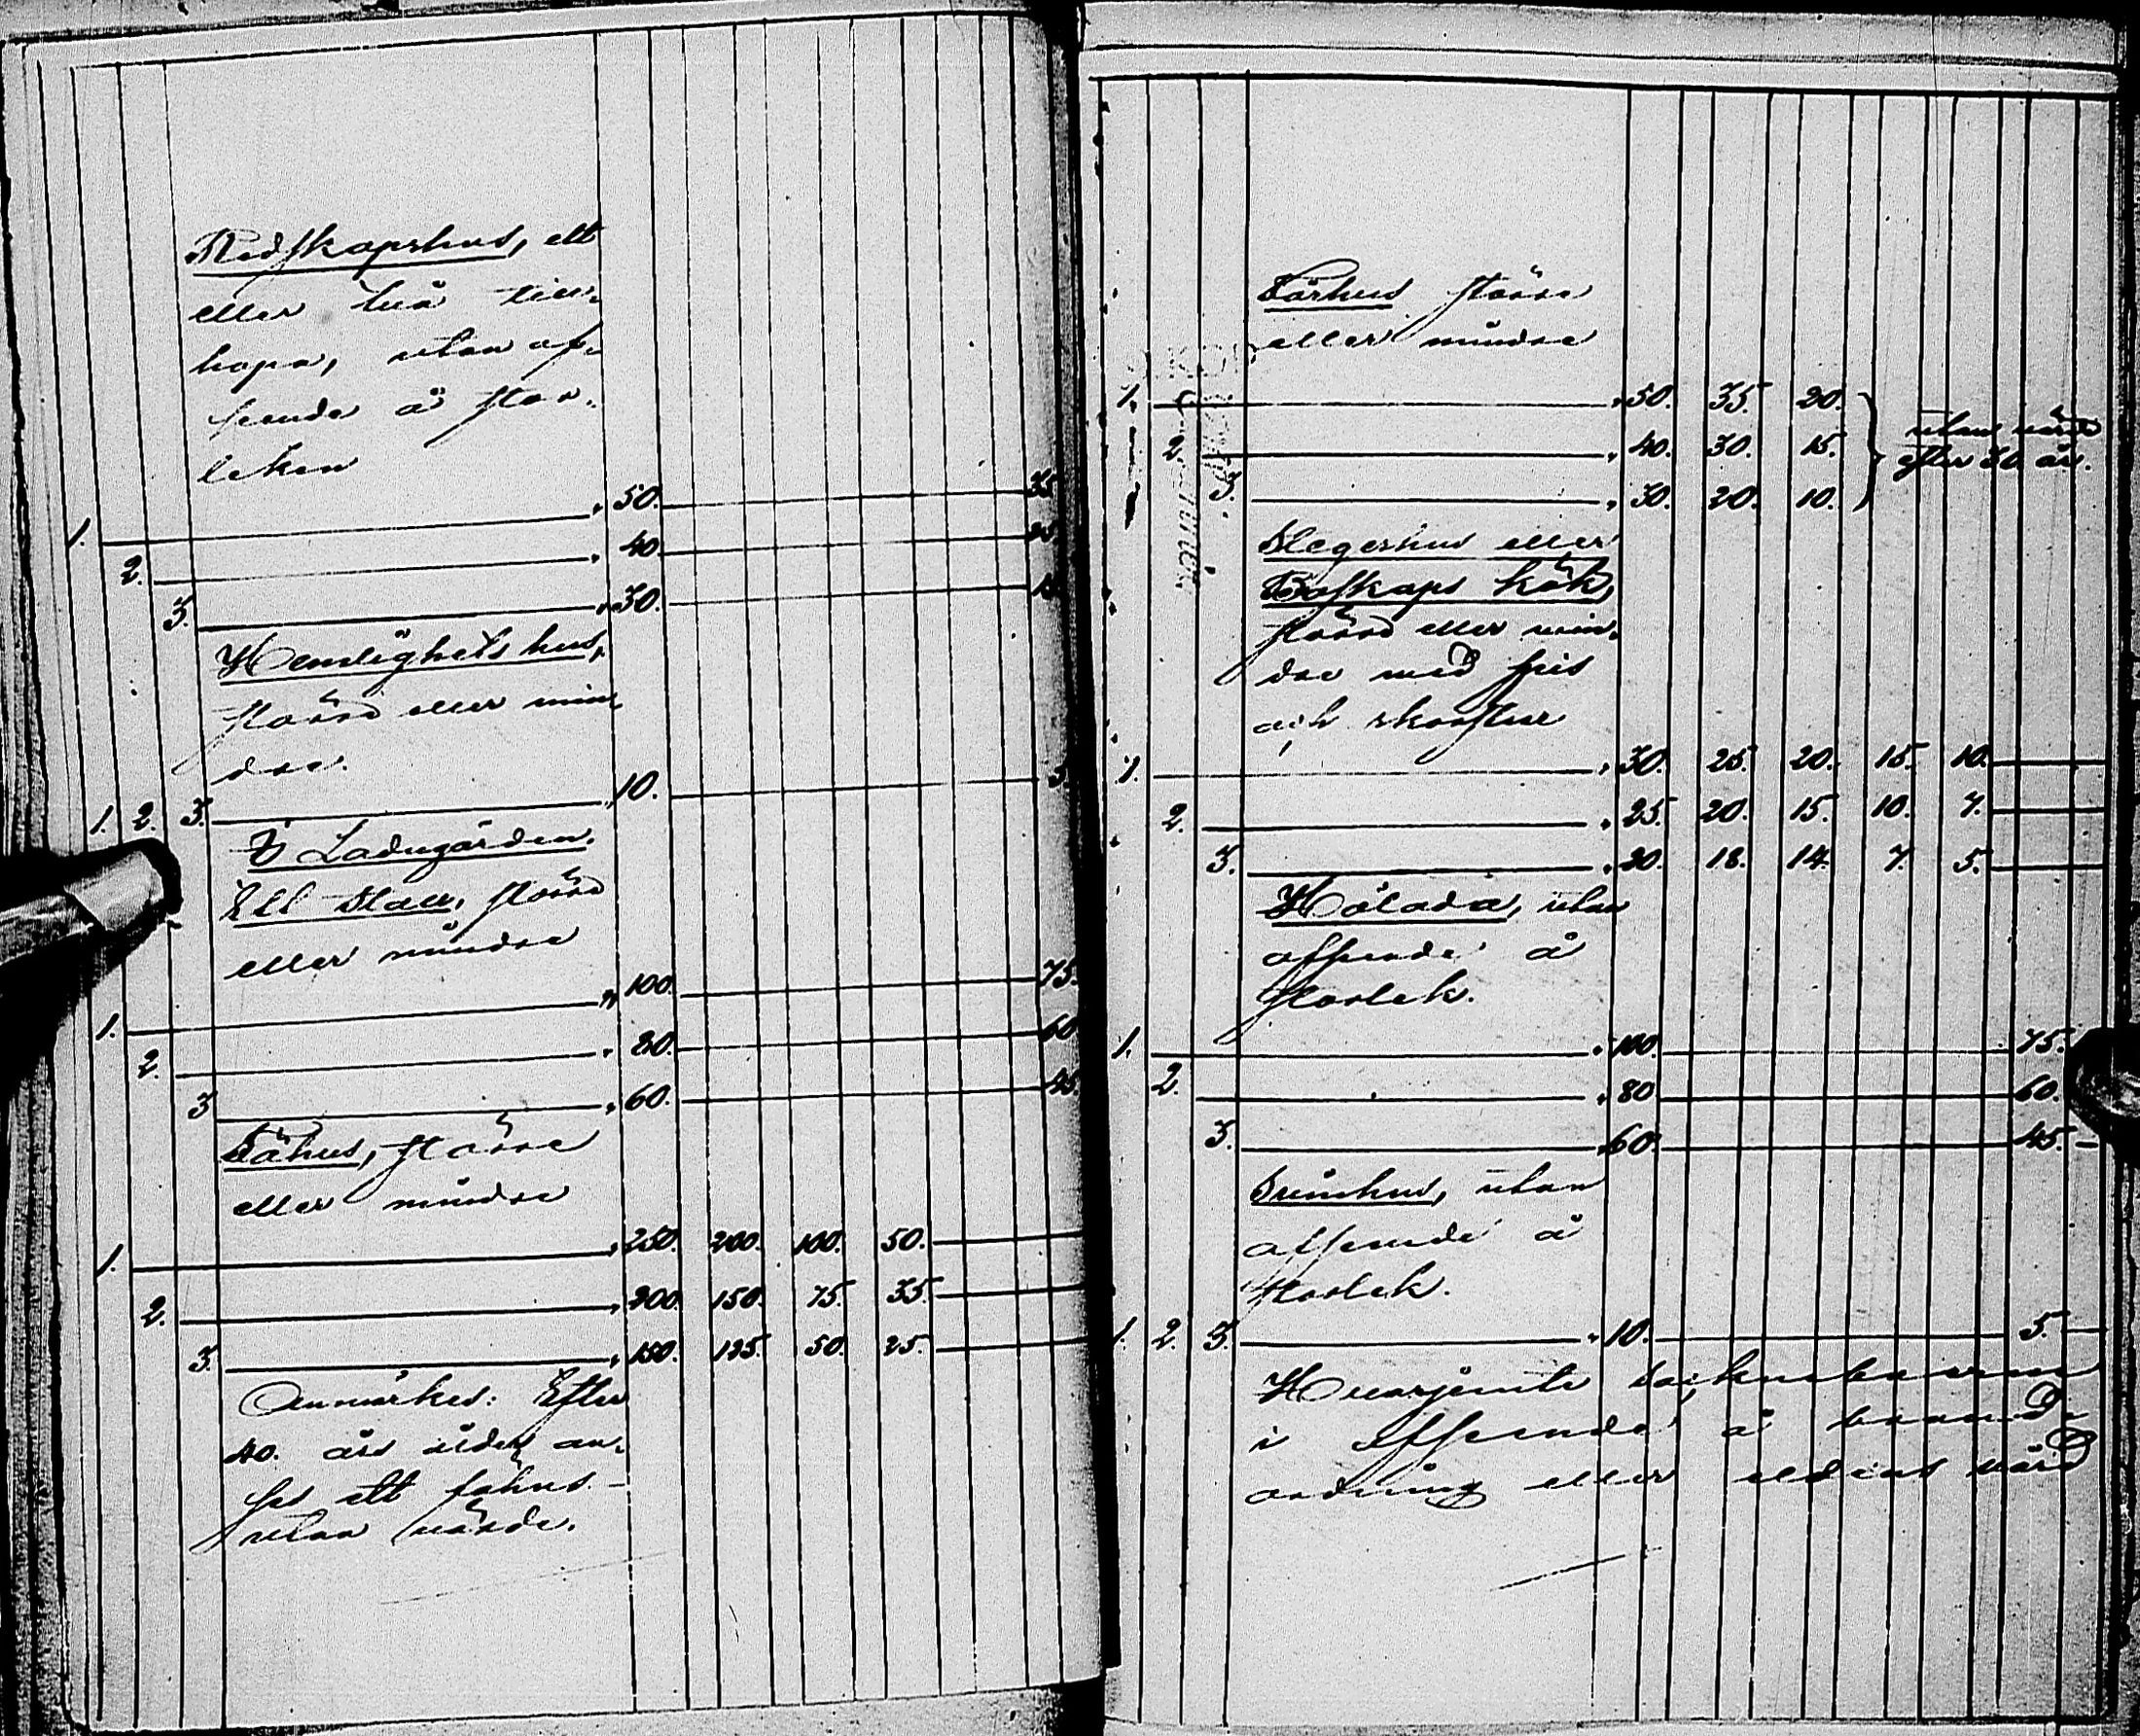 Redskapshus, ett
eller två till-
hopa, utan af-
seende å stor-
leken
1. " 50. 35
2. " 40. 25
3. " 30. 15
Hemlighetshus,
större eller min-
dre.
1. 2. 3. " 10. 5.
I Ladugården.
Ett Stall, större
eller mindre
1. " 100. 75.
2. " 80. 60
3 " 60. 45.
Fähus, större
eller mindre
1. " 250. 200. 100. 50.
2. " 200. 150. 75. 35.
3. " 150. 125. 50. 25.
Anmärkes: Efter
40. års ålder an-
ses ett fähus
utan värde.
Fårhus större
eller mindre
1. " 50. 35. 20.
2. " 40. 30. 15. utan värde
3. " 30. 20. 10. efter 30 år.
Slegershus eller
Boskaps kök,
större eller min-
dre med spis
och skorsten
1. " 30. 25. 20. 15. 10.
2. " 25. 20. 15. 10. 7.
3. " 20. 18. 14. 7. 5.
Hölada, utan
afseende å
storlek.
1. " 100. 75.
2. " 80 60.
3. " 60. 45.
Svinhus, utan
afseende å
storlek.
1. 2. 3. " 10. 5.
Hvarjemte Sockneboerne
i afseende å brand-
ordning eller eldens vård